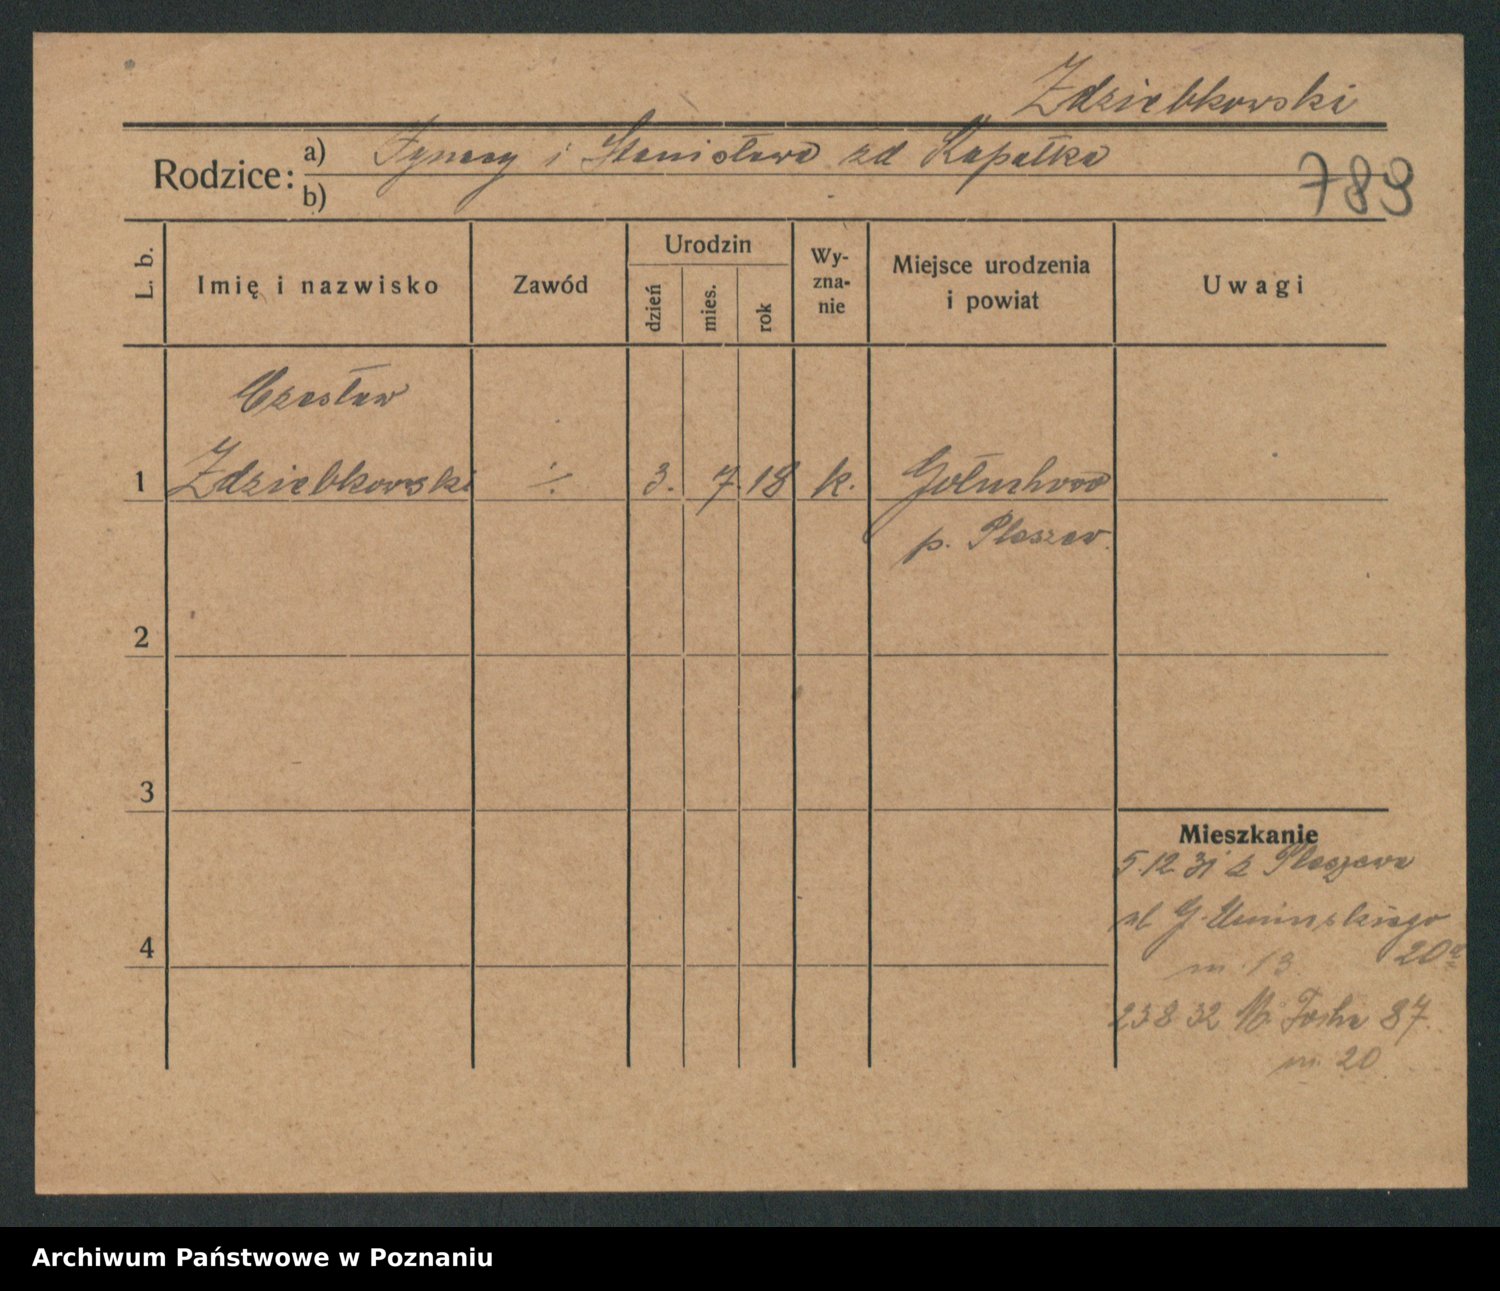 Zdziebkowski
Rodzice:
a) Ignacy i Stanisława zd Kapałka
b)
789
L. b.
Imię i nazwisko
Zawód
Urodzin
dzień
mies.
rok
Wy-
zna-
nie
Miejsce urodzenia
i powiat
Uwagi
Czesław
1 Zdziebkowski ·/. 3. 7. 18 k. Gołuchowo
p. Pleszew.
2
3
Mieszkanie
5.12.31 z Pleszewa
ul G. Umińskiego
4
20a
m. 13.
23 8 32 M. Focha 87
m. 20
Archiwum Państwowe w Poznaniu